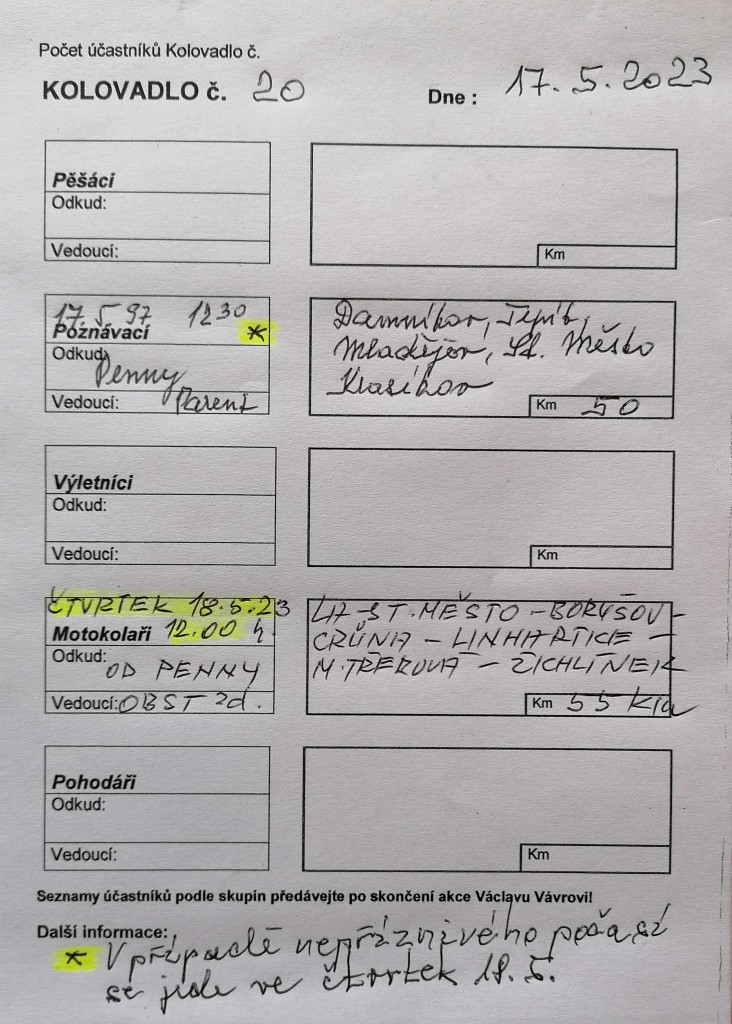 Počet účastníků Kolovadlo č.
KOLOVADLO č. 20
Dne : 17. 5. 2023
Pěšáci
Odkud:
Vedoucí:
Km
17 5 97 1230
Poznávací *
Odkud: Penny
Vedoucí: Parent
Damníkov, Třpík,
Mladějov, St. Město
Krasíkov
Km 50
Výletníci
Odkud:
Vedoucí:
Km
ČTVRTEK 18.5.23
Motokolaři 12.00 h.
Odkud: OD PENNY
Vedoucí: OBST Zd.
LA-ST.MĚSTO-BORUŠOV-
CRŮVA-LINHARTICE-
M.TŘEBOVÁ-ŽICHLÍNEK
Km 55 km
Pohodáři
Odkud:
Vedoucí:
Km
Seznamy účastníků podle skupin předávejte po skončení akce Václavu Vávrovi!
Další informace:
* V případě nepříznivého počasí
se jede ve čtvrtek 18.5.